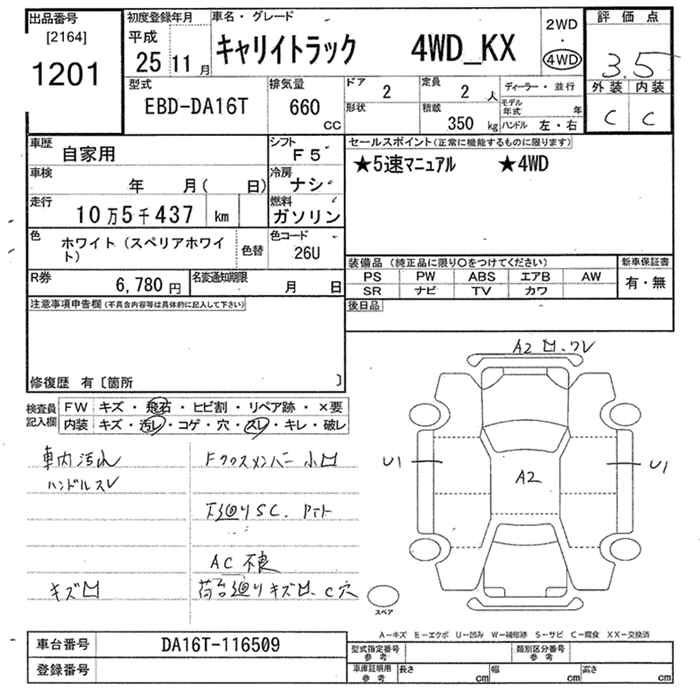 出品番号
[2164]
1201
初度登録年月
平成
25 11 月
車名・グレード
キャリイトラック 4WD_KX
2WD
・
4WD
評価点
3.5
外装 内装
C C
型式
EBD-DA16T
排気量
660
CC
ドア
2
形状
定員
2 人
積載
350 kg
ディーラー・並行
モデル年式 年
ハンドル 左・右
車歴
自家用
シフト
F5
車検
年 月( 日)
冷房
ナシ
走行
10万5千437 km
燃料
ガソリン
色
ホワイト(スペリアホワイト)
色替
色コード
26U
R券
6,780 円
名変通知期限
月 日
セールスポイント(正常に機能するものに限ります)
★5速マニュアル ★4WD
装備品(純正品に限り○をつけてください)
PS PW ABS エアB AW
SR ナビ TV カワ
新車保証書
有・無
後日品
注意事項申告欄(不具合内容等は具体的に記入して下さい)
修復歴 有〔箇所 〕
検査員記入欄
FW キズ・飛石・ヒビ割・リペア跡・×要
内装 キズ・汚レ・コゲ・穴・スレ・キレ・破レ
車内汚れ
ハンドルスレ
キズ凹
Fクロスメンバー小凹
下廻りSC.
AC不良
荷台廻りキズ凹、C穴
A2 凹.ワレ
U1
A2
U1
スペア
A-キズ E-エクボ U-凹み W-補修跡 S-サビ C-腐食 XX-交換済
車台番号
DA16T-116509
登録番号
型式指定番号
参考
類別区分番号
参考
車庫証明用
参考
長さ cm
幅 cm
高さ cm